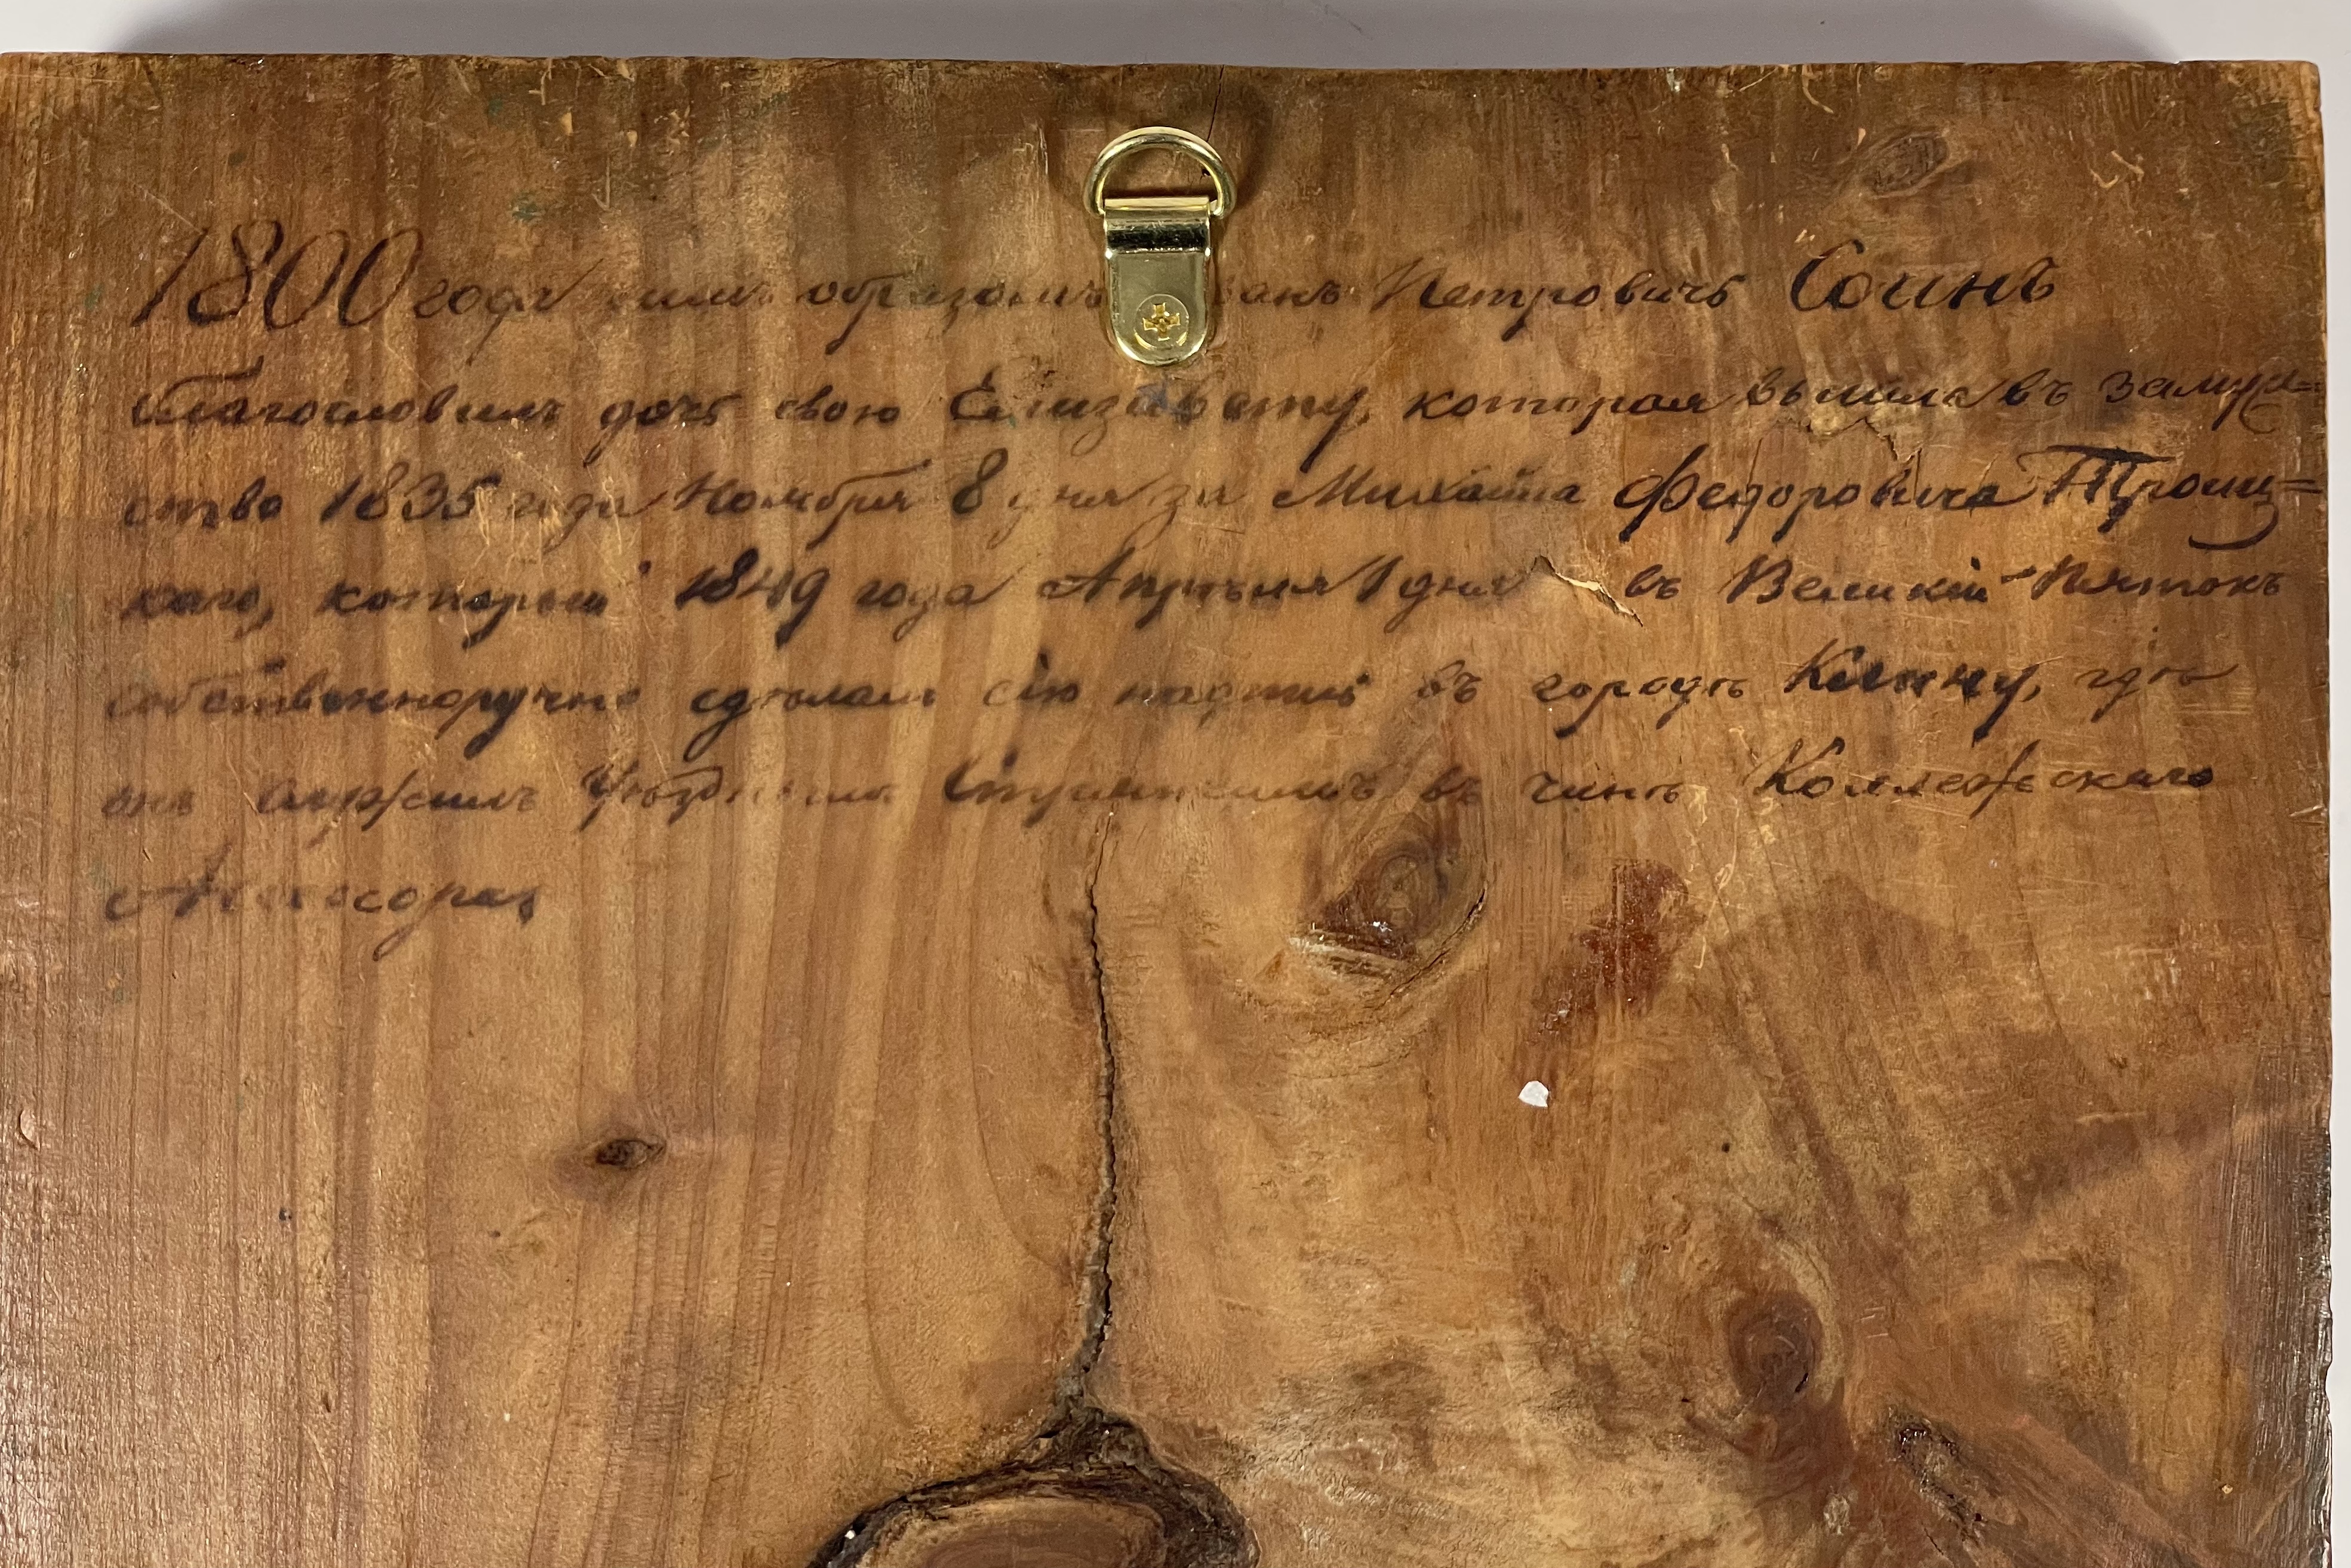 1800 года симъ образомъ Петровичъ Соинъ
благословилъ дочь свою Елизавету, которая вышла въ замуж=
ство 1835 года Ноября 8 дня за Михаила Федоровича Троиц=
каго, который 1849 года Апрѣля 1 дня въ Великій Пятокъ
собственноручно сдѣлалъ сію надпись въ городѣ Клину, гдѣ
онъ служилъ Уѣзднымъ Стряпчимъ въ чинѣ Коллежскаго
Ассесора,